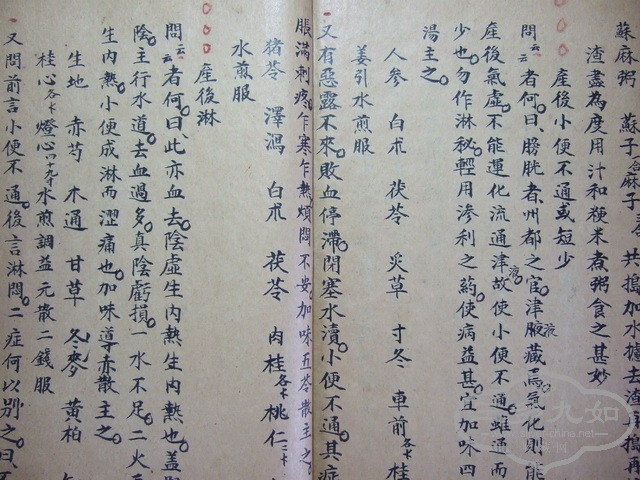 蘇麻粥 蘇子 麻子 共搗加水濾去渣再搗再
渣盡為度用汁和粳米煮粥食之甚妙
產後小便不通或短少
問云云者何曰膀胱者州都之官津液藏焉氣化則能
產後氣虛不能運化流通津液故使小便不通雖通而
少也勿作淋秘輕用滲利之药使病益甚宜加味四
湯主之
人參 白朮 茯苓 炙草 寸冬 車前 各卜 桂
姜引水煎服
又有惡露不來敗血停滯閉塞水瀆小便不通其症
脹满刺疼乍寒乍熱煩悶不安加味五苓散主之
猪苓 澤瀉 白朮 茯苓 肉桂各卜 桃仁二卜
水煎服
產後淋
問云云者何曰此亦血去陰虛生內熱生內熱也蓋
陰主行水道去血過多真陰虧損一水不足二火
生內熱小便成淋而澀痛也加味導赤散主之
生地 赤芍 木通 甘草 冬麥 黃柏
桂心各卜 燈心四十九寸水煎調益元散二錢服
又問前言小便不通後言淋悶二症何以別之曰
九如